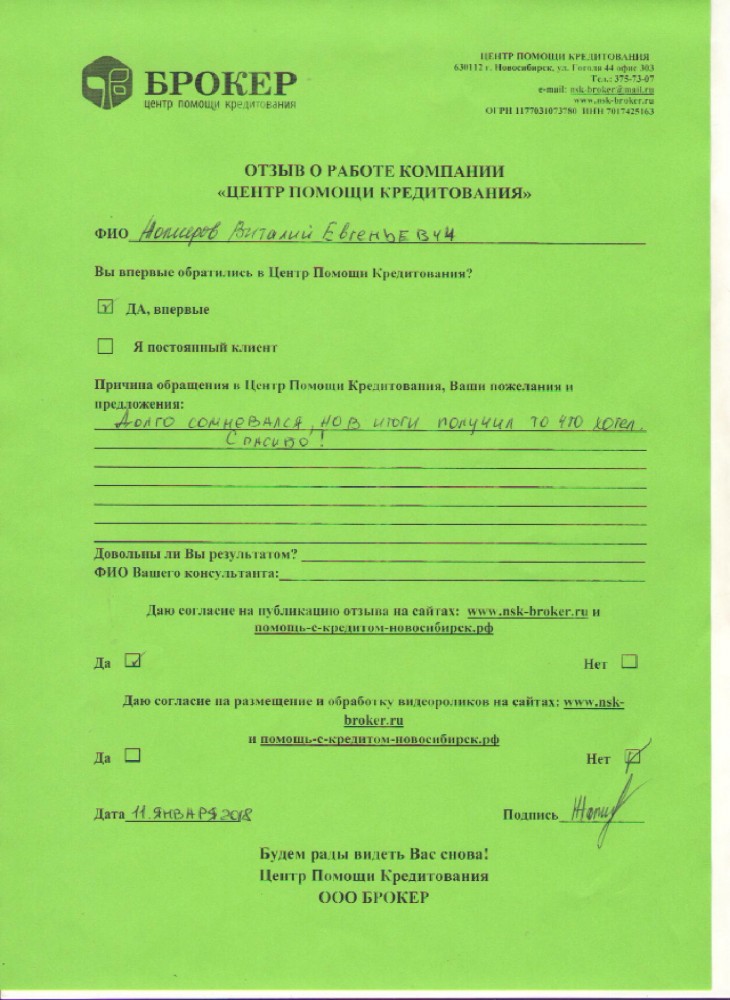 БРОКЕР
центр помощи кредитования
ЦЕНТР ПОМОЩИ КРЕДИТОВАНИЯ
630112 г. Новосибирск, ул. Гоголя 44 офис 303
Тел.: 375-73-07
e-mail: nsk-broker@mail.ru
www.nsk-broker.ru
ОГРН 1177031073780 ИНН 7017425163
ОТЗЫВ О РАБОТЕ КОМПАНИИ
«ЦЕНТР ПОМОЩИ КРЕДИТОВАНИЯ»
ФИО Виталий Евгеньевич
Вы впервые обратились в Центр Помощи Кредитования?
ДА, впервые
Я постоянный клиент
Причина обращения в Центр Помощи Кредитования, Ваши пожелания и
предложения:
Долго сомневался, но в итоги получил то что хотел.
Спасибо!
Довольны ли Вы результатом?
ФИО Вашего консультанта:
Даю согласие на публикацию отзыва на сайтах: www.nsk-broker.ru и
помощь-с-кредитом-новосибирск.рф
Да Нет
Даю согласие на размещение и обработку видеороликов на сайтах: www.nsk-
broker.ru
и помощь-с-кредитом-новосибирск.рф
Да Нет
Дата 11. января 2018 Подпись
Будем рады видеть Вас снова!
Центр Помощи Кредитования
ООО БРОКЕР